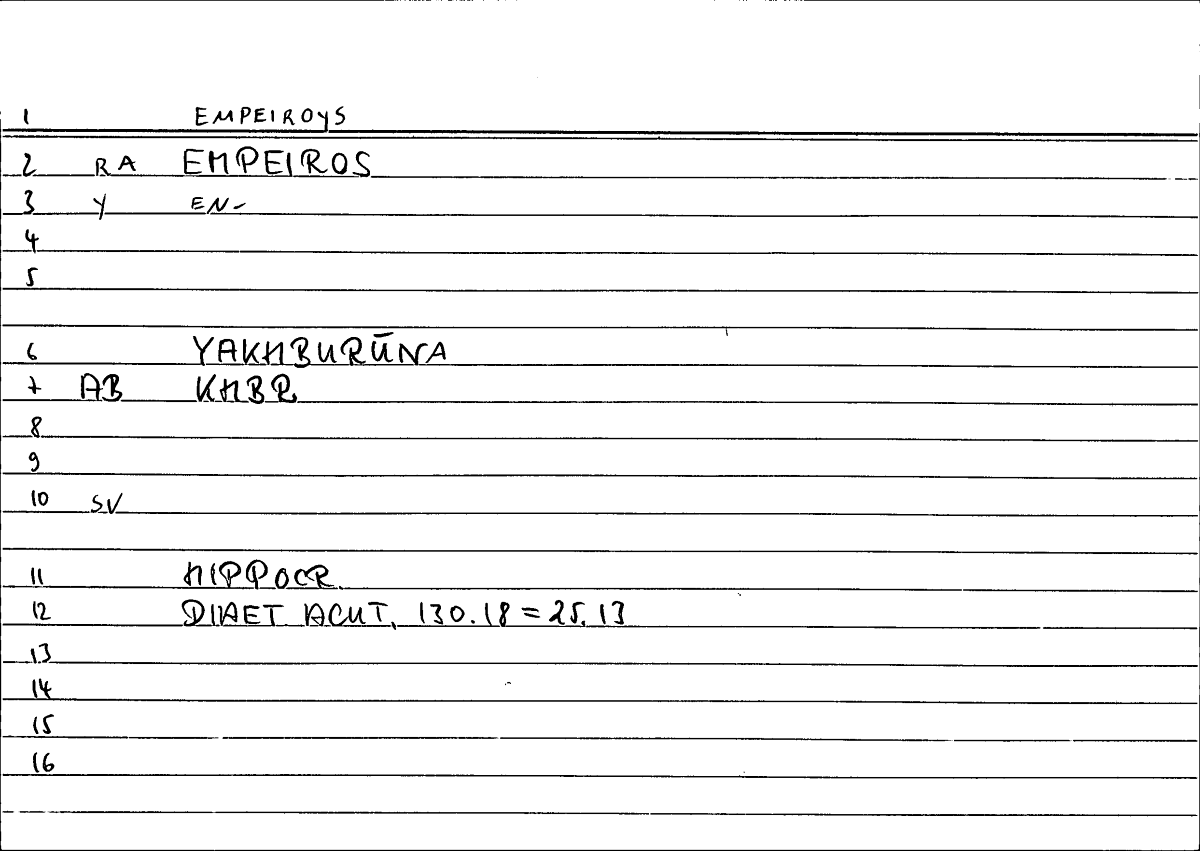 1 EMPEIROYS
2 RA EMPEIROS
3 Y EN-
4
5
6 YAKHBURŪNA
7 AB KHBR
8
9
10 SV
11 HIPPOCR.
12 DIAET ACUT. 130.18 = 25.13
13
14
15
16